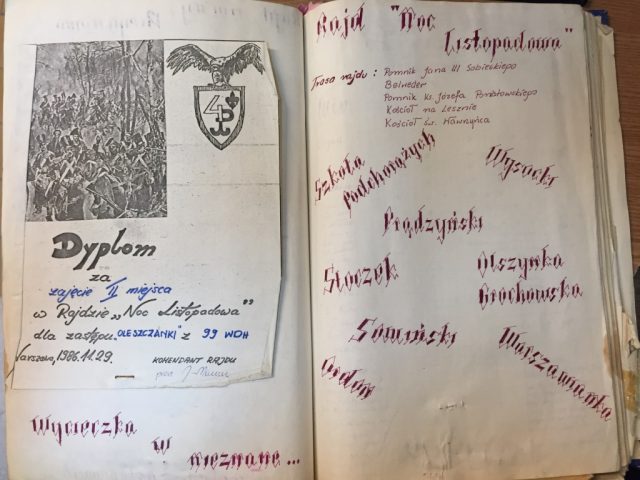 Dyplom
za
zajęcie II miejsca
w Rajdzie „Noc Listopadowa"
dla zastępu „OLESZCZANKI" z 99 WDH
Warszawa, 1986.11.29.
KOMENDANT RAJDU
Wycieczka
w
nieznane...
Rajd "Noc
Listopadowa"
Trasa rajdu : Pomnik Jana III Sobieskiego
Belweder
Pomnik ks. Józefa Poniatowskiego
Kościół na Lesznie
Kościół św. Wawrzyńca
Szkoła
Podchorążych
Wysocki
Prądzyński
Stoczek
Olszynka
Grochowska
Sowiński
Ordon
Warszawianka